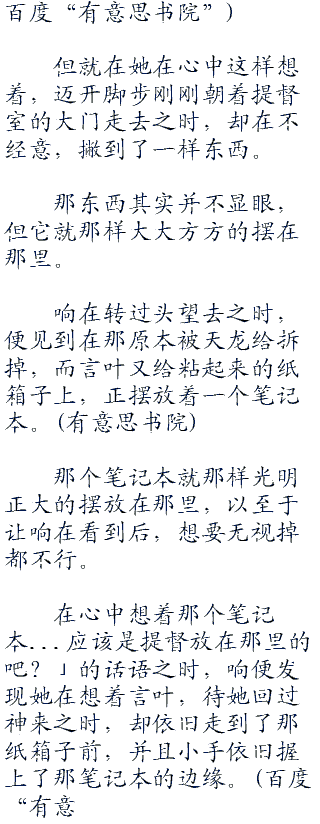 百度“有意思书院”)
但就在她在心中这样想
着，迈开脚步刚刚朝着提督
室的大门走去之时，却在不
经意，撇到了一样东西。
那东西其实并不显眼，
但它就那样大大方方的摆在
那里。
响在转过头望去之时，
便见到在那原本被天龙给拆
掉，而言叶又给粘起来的纸
箱子上，正摆放着一个笔记
本。(有意思书院)
那个笔记本就那样光明
正大的摆放在那里，以至于
让响在看到后，想要无视掉
都不行。
在心中想着那个笔记
本...应该是提督放在那里的
吧？」的话语之时，响便发
现她在想着言叶，待她回过
神来之时，却依旧走到了那
纸箱子前，并且小手依旧握
上了那笔记本的边缘。(百度
“有意